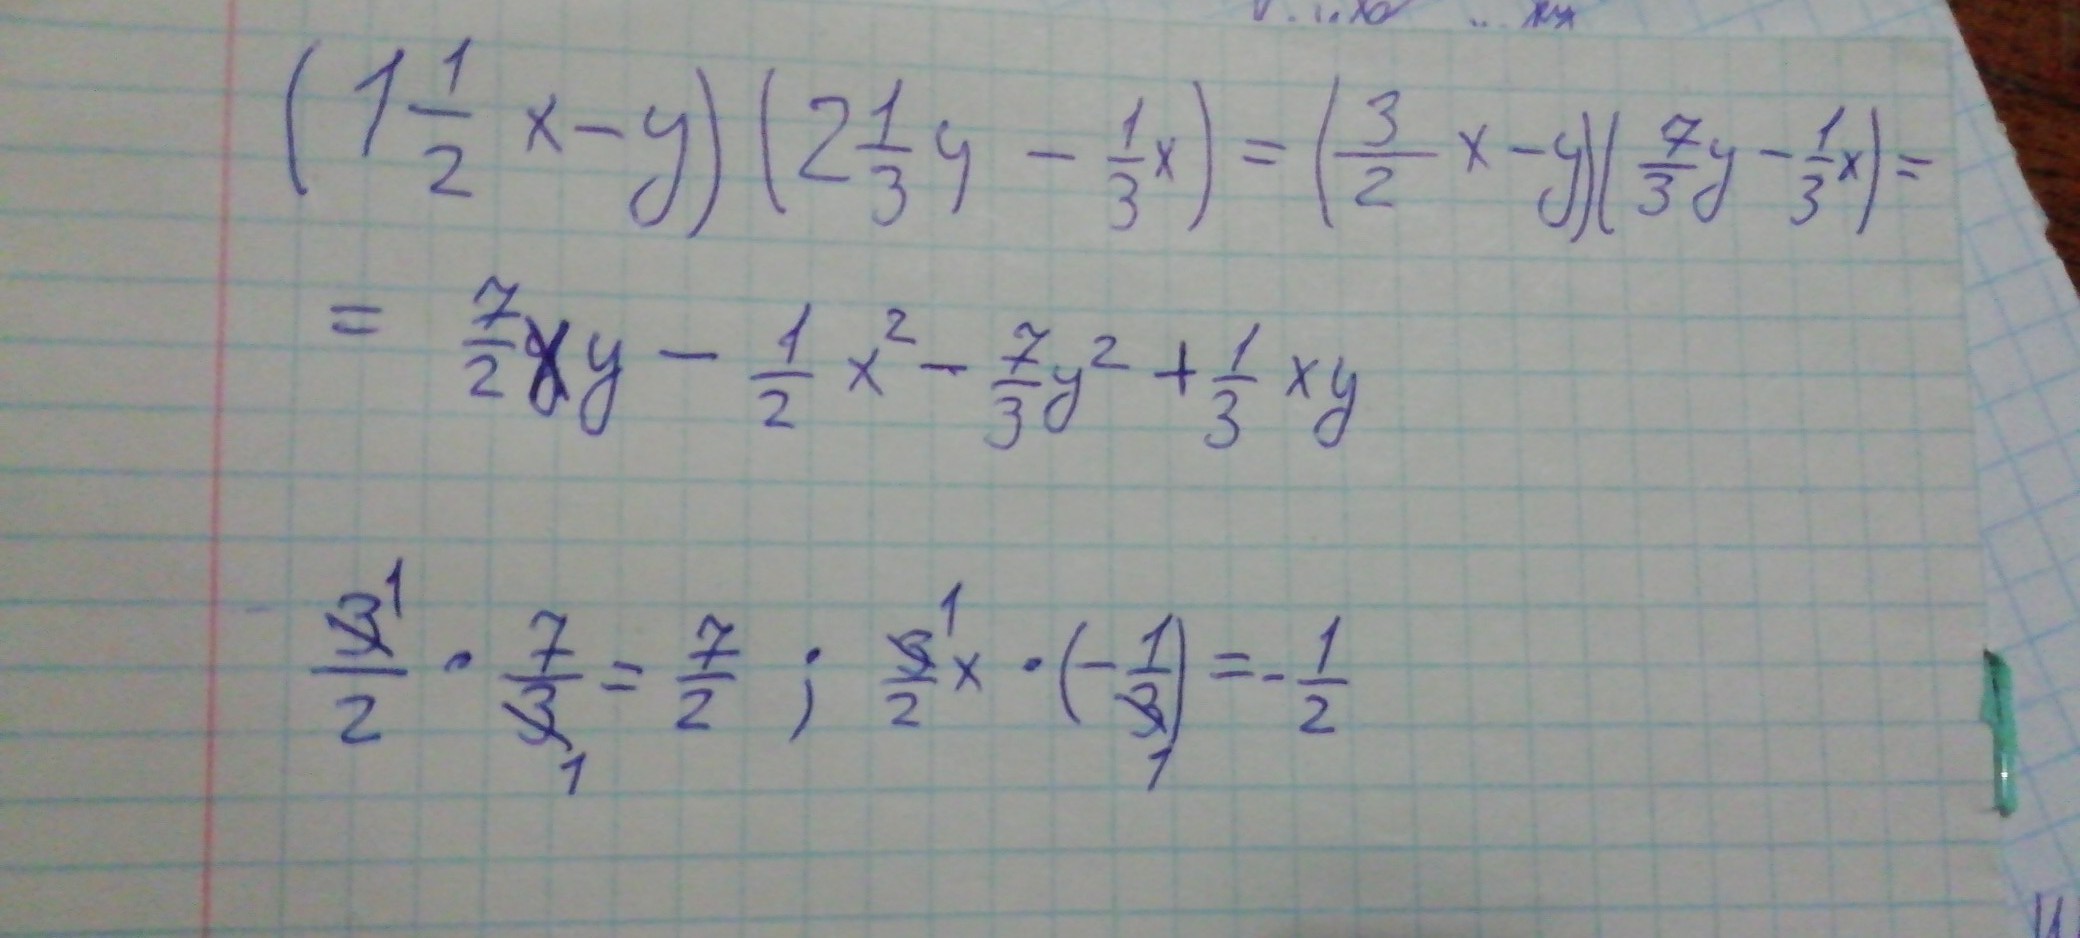 (1 1/2 x - y)(2 1/3 y - 1/3 x) = (3/2 x - y)(7/3 y - 1/3 x) =
= 7/2 xy - 1/2 x² - 7/3 y² + 1/3 xy
3¹/2 · 7/3₁ = 7/2 ; 3¹/2 x · (- 1/3₁) = - 1/2